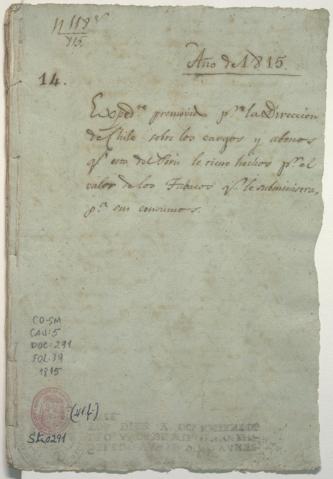 N 118
815.
Año de 1815.
14.
Exped.te promovido p.r la Dirección
de Chile sobre los cargos y abonos
q.e esta del Perú le tiene hechos p.r el
valor de los Tabacos q.e le subministra,
p.a sus consumos.
CO-SM
CAJ: 5
DOC: 291
FOL: 39
1815
(414)
St.0291